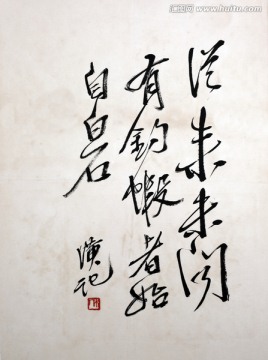 汇图网
www.huitu.com
從来未闻
有釣蝦者始
自白石
璜记